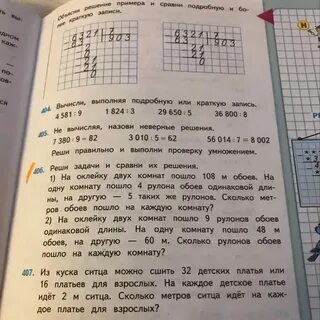 Объясни решение примера и сравни подробную и бо-
лее краткую запись.
6321 7
903
6321 7
63 903
21
21
0
404. Вычисли, выполняя подробную или краткую запись.
4 581 : 9 1 824 : 3 29 650 : 5 36 800 :
405. Не вычисляя, назови неверные решения.
7 380 : 9 = 82 3 010 : 5 = 62 56 014 : 7 = 8 002
Реши правильно и выполни проверку умножением.
406. Реши задачи и сравни их решения.
1) На оклейку двух комнат пошло 108 м обоев. На
одну комнату пошло 4 рулона обоев одинаковой дли-
ны, на другую — 5 таких же рулонов. Сколько мет-
ров обоев пошло на каждую комнату?
2) На оклейку двух комнат пошло 9 рулонов обоев
одинаковой длины. На одну комнату пошло 48 м
обоев, на другую — 60 м. Сколько рулонов обоев
пошло на каждую комнату?
407. Из куска ситца можно сшить 32 детских платья или
16 платьев для взрослых. На каждое детское платье
идёт 2 м ситца. Сколько метров ситца идёт на каж-
дое платье для взрослых?